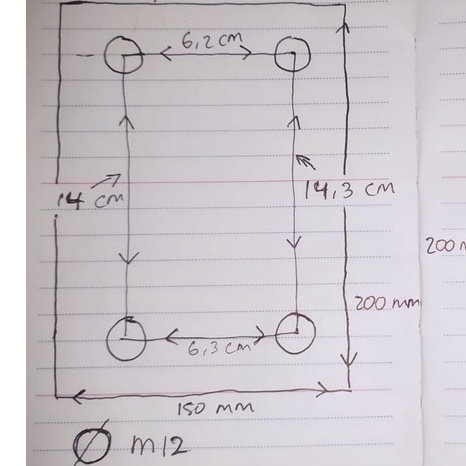 6,2 cm
14 cm
14,3 cm
200 mm
200 m
6,3 cm
150 mm
Ø M12